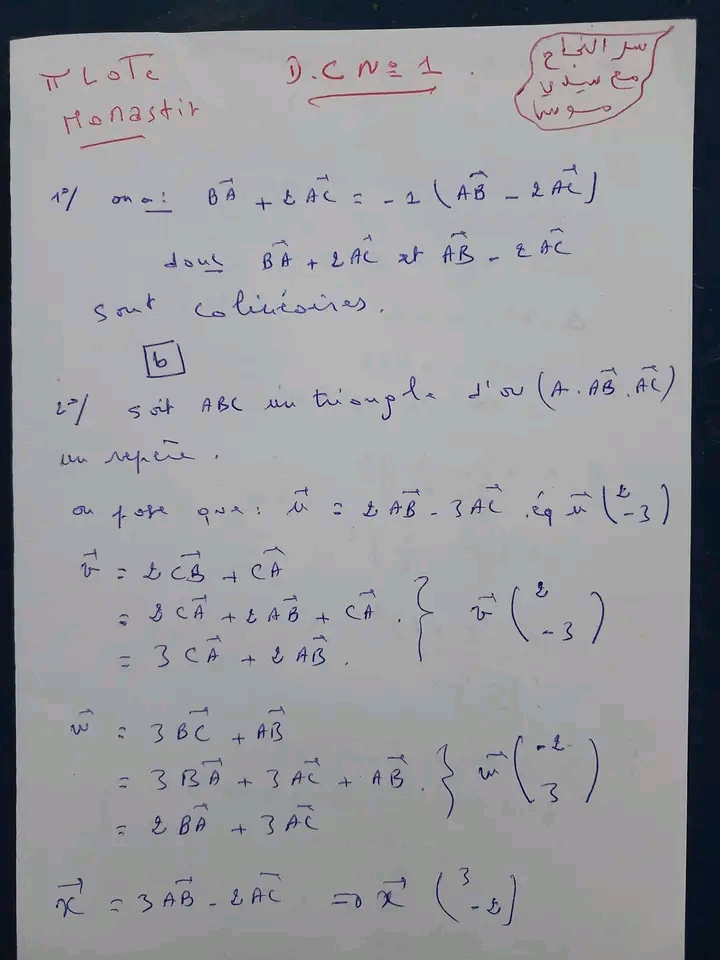 π LOTE
Monastir
D.C N° 1.
سر النجاح
مع سيدي
موسى
1°/ on a: BA⃗ + 2AC⃗ = -1 (AB⃗ - 2AC⃗)
donc BA⃗ + 2AC⃗ et AB⃗ - 2AC⃗
sont colinéaires.
b
2°/ soit ABC un triangle d'où (A. AB⃗. AC⃗)
un repère.
on pose que: u⃗ = 2AB⃗ - 3AC⃗. éq u⃗ (2 -3)
v⃗ = 2CB⃗ + CA⃗
= 2CA⃗ + 2AB⃗ + CA⃗. } v⃗ (2 -3)
= 3CA⃗ + 2AB⃗.
w⃗ = 3BC⃗ + AB⃗
= 3BA⃗ + 3AC⃗ + AB⃗. } w⃗ (-2 3)
= 2BA⃗ + 3AC⃗
x⃗ = 3AB⃗ - 2AC⃗ => x⃗ (3 -2)